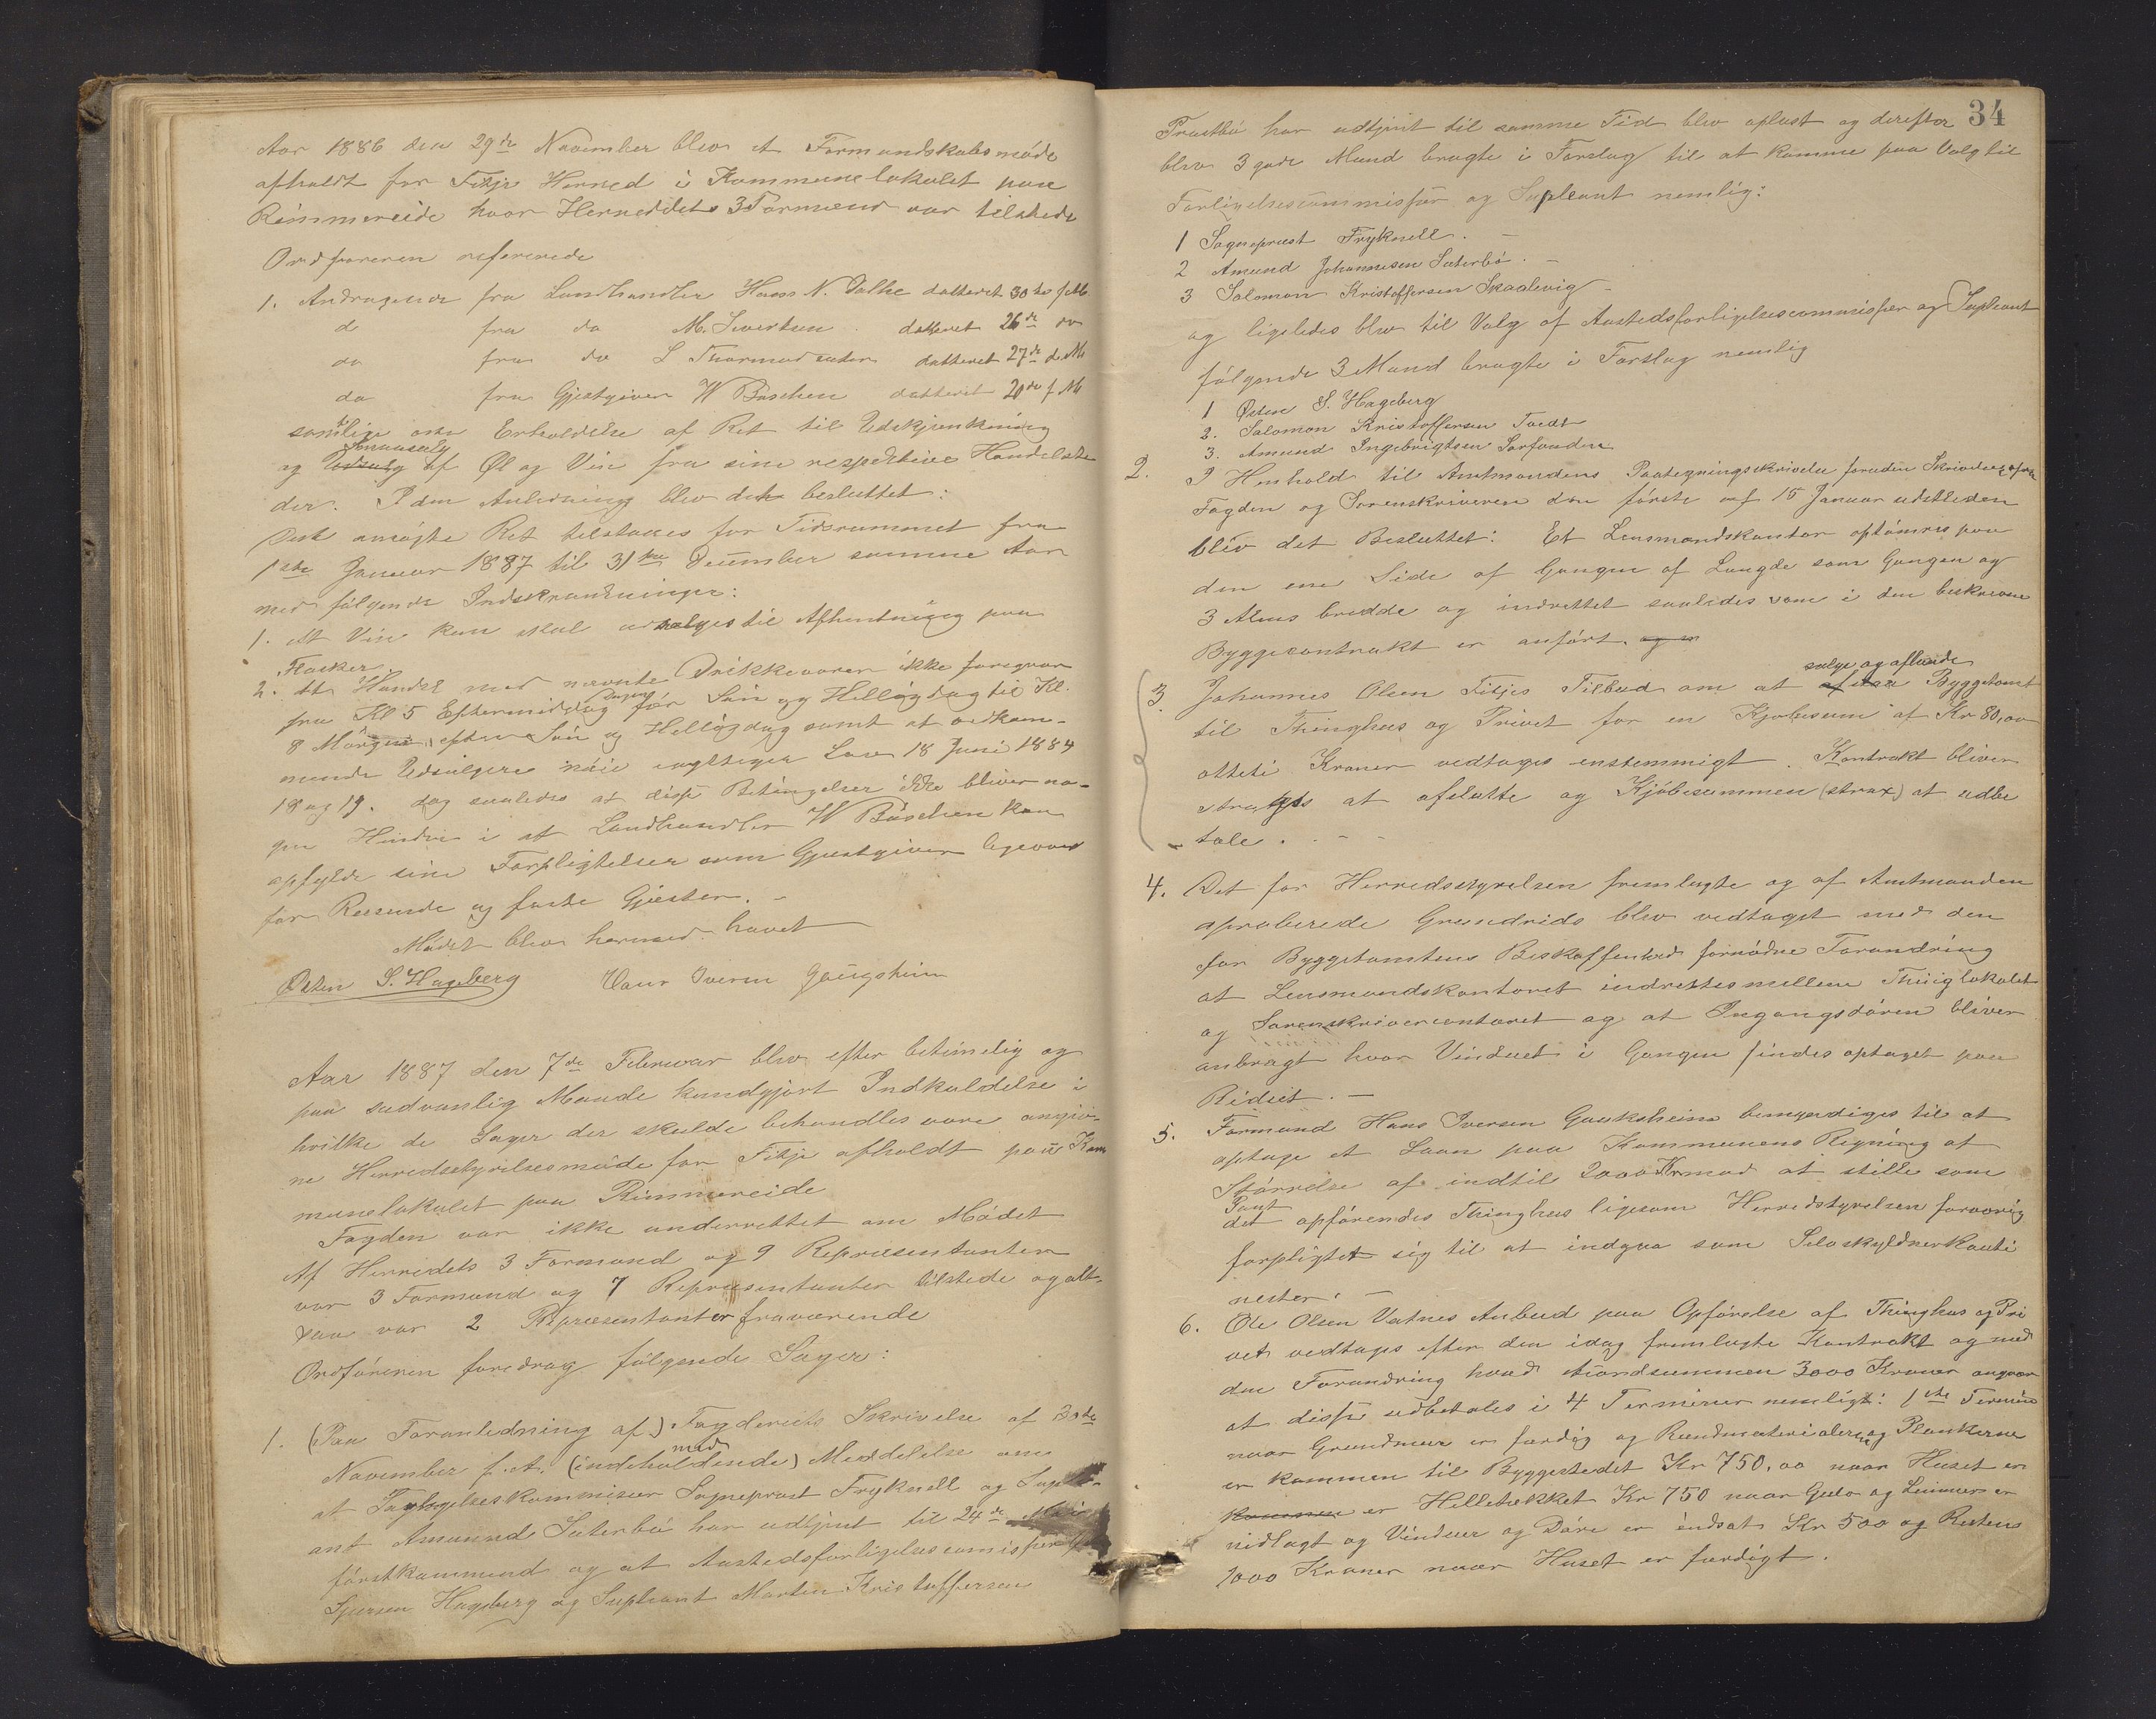 Aar 1886 den 29de November blev et Formandskabsmöde
afholdt for Fitje Herred i Kommunelokalet paa
Rimmereide hvor Herredets 3 Formænd var tilstede
Ordföreren refererede
1. Andragende fra Landhandler Hans N. Dalhe datteret 30te f. M.
do fra do M. Sivertsen datteret 26de do
do fra do L Thormodsæter datteret 27de d. M.
do fra Gjestgiver W Büschen datteret 20de f M
samtlige om Erholdelse af Ret til Udskjænkning
og Smaasalg af Øl og Vin fra sine respektive Handelsste
der. I den Anledning blev det besluttet:
Den ansögte Ret tilstaaes for Tidsrummet fra
1ste Januar 1887 til 31te December samme Aar
med fölgende Indskrænkninger:
1. At Vin kun skal udsælges til Afhentning paa
Flasker.
2. At Handel med nævnte Drikkevarer ikke foregaar
fra Kl 5 Eftermiddag Dagen för Sön og Helligdag til Kl.
8 Morgen efter Sön og Helligdag samt at vedkom-
mende Udsælgere nöie iagttager Lov 18 Juni 1884
18 og 19. dog saaledes at disse Betingelser ikke bliver no-
gen Hinder i at Landhandler W Büschen kan
opfylde sine Forpligtelser som Gjestgiver ligeoverfor
for Reisende og faste Gjæster. -
Mödet blev hermed hævet
Østen S. Hageberg Hans Iversen Gaugsheim
Aar 1887 den 7de Februar blev efter betimelig og
paa sædvanlig Maade kundgjort Indkaldelse i
hvilke de Sager der skulde behandles vare angiv-
ne Herredsstyrelsesmöde for Fitje afholdt paa Kom
munelokalet paa Rimmereide
Fogden var ikke underrettet om Mödet
Af Herredets 3 Formænd og 9 Repræsentanter
var 3 Formænd og 7 Repræsentanter tilstede og alt-
saa var 2 Repræsentanter fraværende
Ordföreren foredrog fölgende Sager:
1. (Paa Foranledning af) Fogderiets Skrivelse af 30te
November f. A. (indeholdende) med Meddelelse om
at Forligelseskommisær Sogneprest Fryknell og Suple-
ant Amund Sæterbö har udtjent til 24de
förstkommend og at Aastedsforligelsescomissær
Sjursen Hageberg og Supleant Morten Kristoffersen
34
Prestbö har udtjent til samme Tid blev oplæst og derefter
blev 3 gode Mænd bragte i Forslag til at komme paa Valg til
Forligelsescommissær og Supleant nemlig:
1 Sogneprest Fryknell. -
2 Amund Johannesen Sæterbö. -
3 Salomon Kristoffersen Skaalevig -
og ligeledes blev til Valg af Aastedsforligelsescommissær og Supleant
fölgende 3 Mænd bragte i Forslag nemlig
1 Østen S. Hageberg
2. Salomon Kristoffersen Tvedt
3. Amund Ingebrigtsen Sørfonden
2. I Henhold til Amtmandens Paategningsskrivelse foruden Skrivelse fra
Fogden og Sorenskriveren den förste af 15 Januar udstleden
blev det Besluttet: Et Lensmandskontor optömres paa
den ene Side af Gangen af Længde som Gangen og
3 Alens bredde og indrettet saaledes som i den beskrevne
Byggecontrakt er anfört. og er
3. Johannes Olsen Fitjes Tilbud om at sælge og aflænde Byggetomt
til Thinghus og Privet for en Kjøbesum af Kr 80,00
otteti Kroner vedtages enstemmigt. Kontrakt bliver
strags at afslutte og Kjöbesummen (strax) at udbe
tale. - -
4. Det for Herredsstyrelsen fremlagte og af Amtmanden
aproberede Grundrids blev vedtaget med den
for Byggetomtens Beskaffenhed fornödne Forandring
at Lensmandskontoret indrettes mellem Thinglokalet
og Sorenskrivercontoret og at Ingangsdören bliver
anbragt hvor Vinduet i Gangen findes optaget paa
Ridset. -
5. Formand Hans Iversen Gauksheim bemyndiges til at
optage et Laan paa Kommunens Regning af
Störrelse af indtil 2000 Kr mod at stille som
Pant
det opförendes Thinghus ligesom Herredstyrelsen forövrig
forpligtet sig til at indgaa som Selvskyldnerkauti
nester. -
6. Ole Olsen Vatnes Anbud paa Opförelse af Thinghus og Pri
vet vedtages efter den idag fremlagte Kontrakt og med
den Forandring hvad Akordsummen 3000 Kroner angaar
at disse udbetales i 4 Terminer nemligt: 1ste Termin
naar Grundmur er færdig og Rundmaterialerne og Plankerne
er kommen til Byggestedet Kr 750,00 naar Huset er
kommen er Helletækket Kr 750 naar Gulv og Lemmer er
nidlagt og Vinduer og Döre er indsat Kr 500 og Resten
1000 Kroner naar Huset er færdigt.